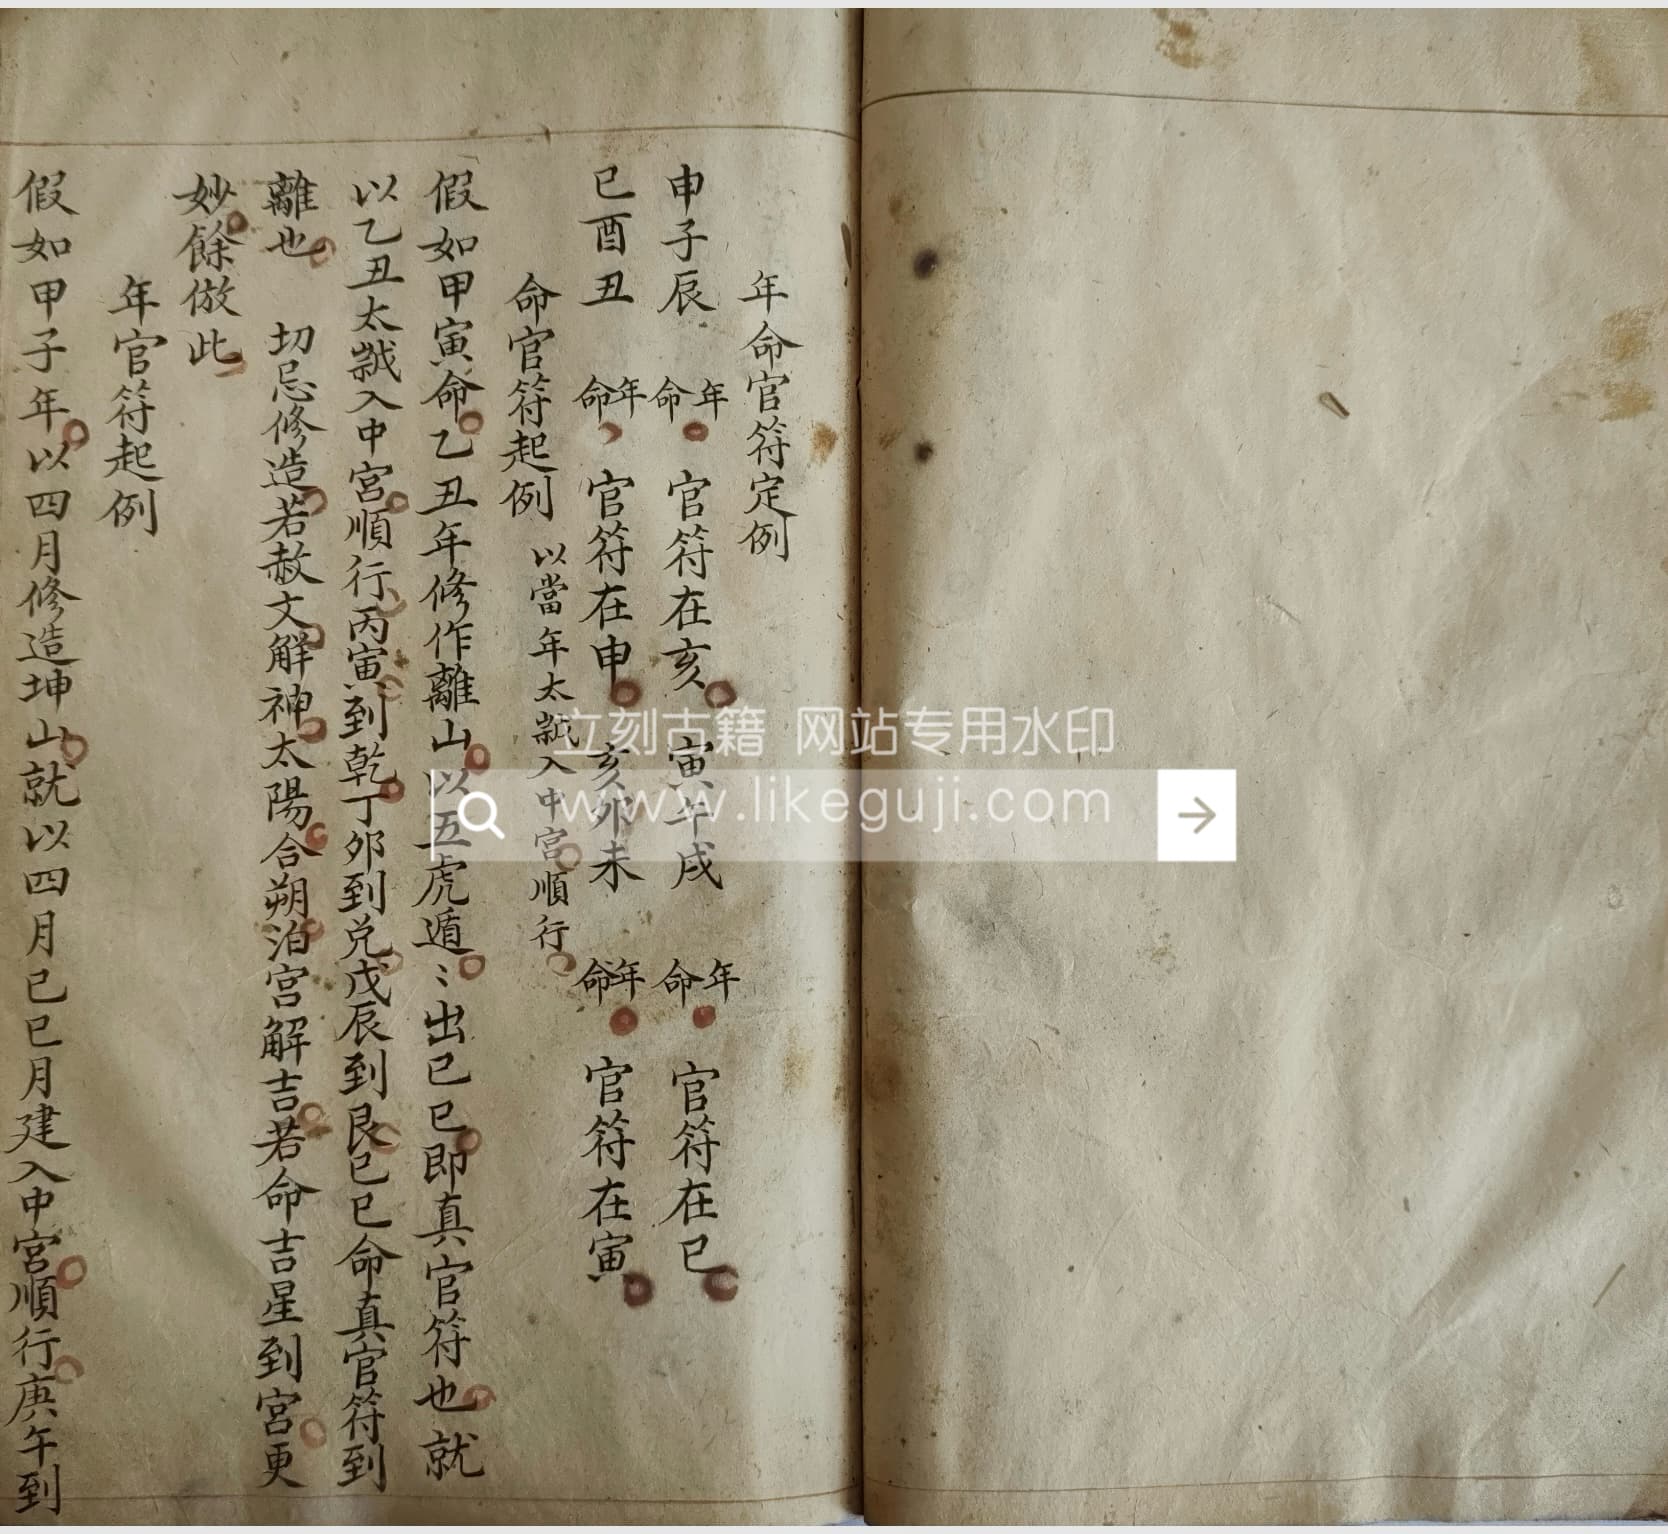 年命官符定例
申子辰 年命 官符在亥 寅午戌 年命 官符在巳
巳酉丑 年命 官符在申 亥卯未 年命 官符在寅
命官符起例 以當年太歲入中宮順行
假如甲寅命乙丑年修作離山以五虎遁〻出己巳即真官符也就
以乙丑太歲入中宮順行丙寅到乾丁卯到兑戊辰到艮己巳命真官符到
離也 切忌修造若赦文解神太陽合朔泊宮解吉若命吉星到宮更
妙餘倣此
年官符起例
假如甲子年以四月修造坤山就以四月己巳月建入中宮順行庚午到
立刻古籍 网站专用水印
www.likeguji.com